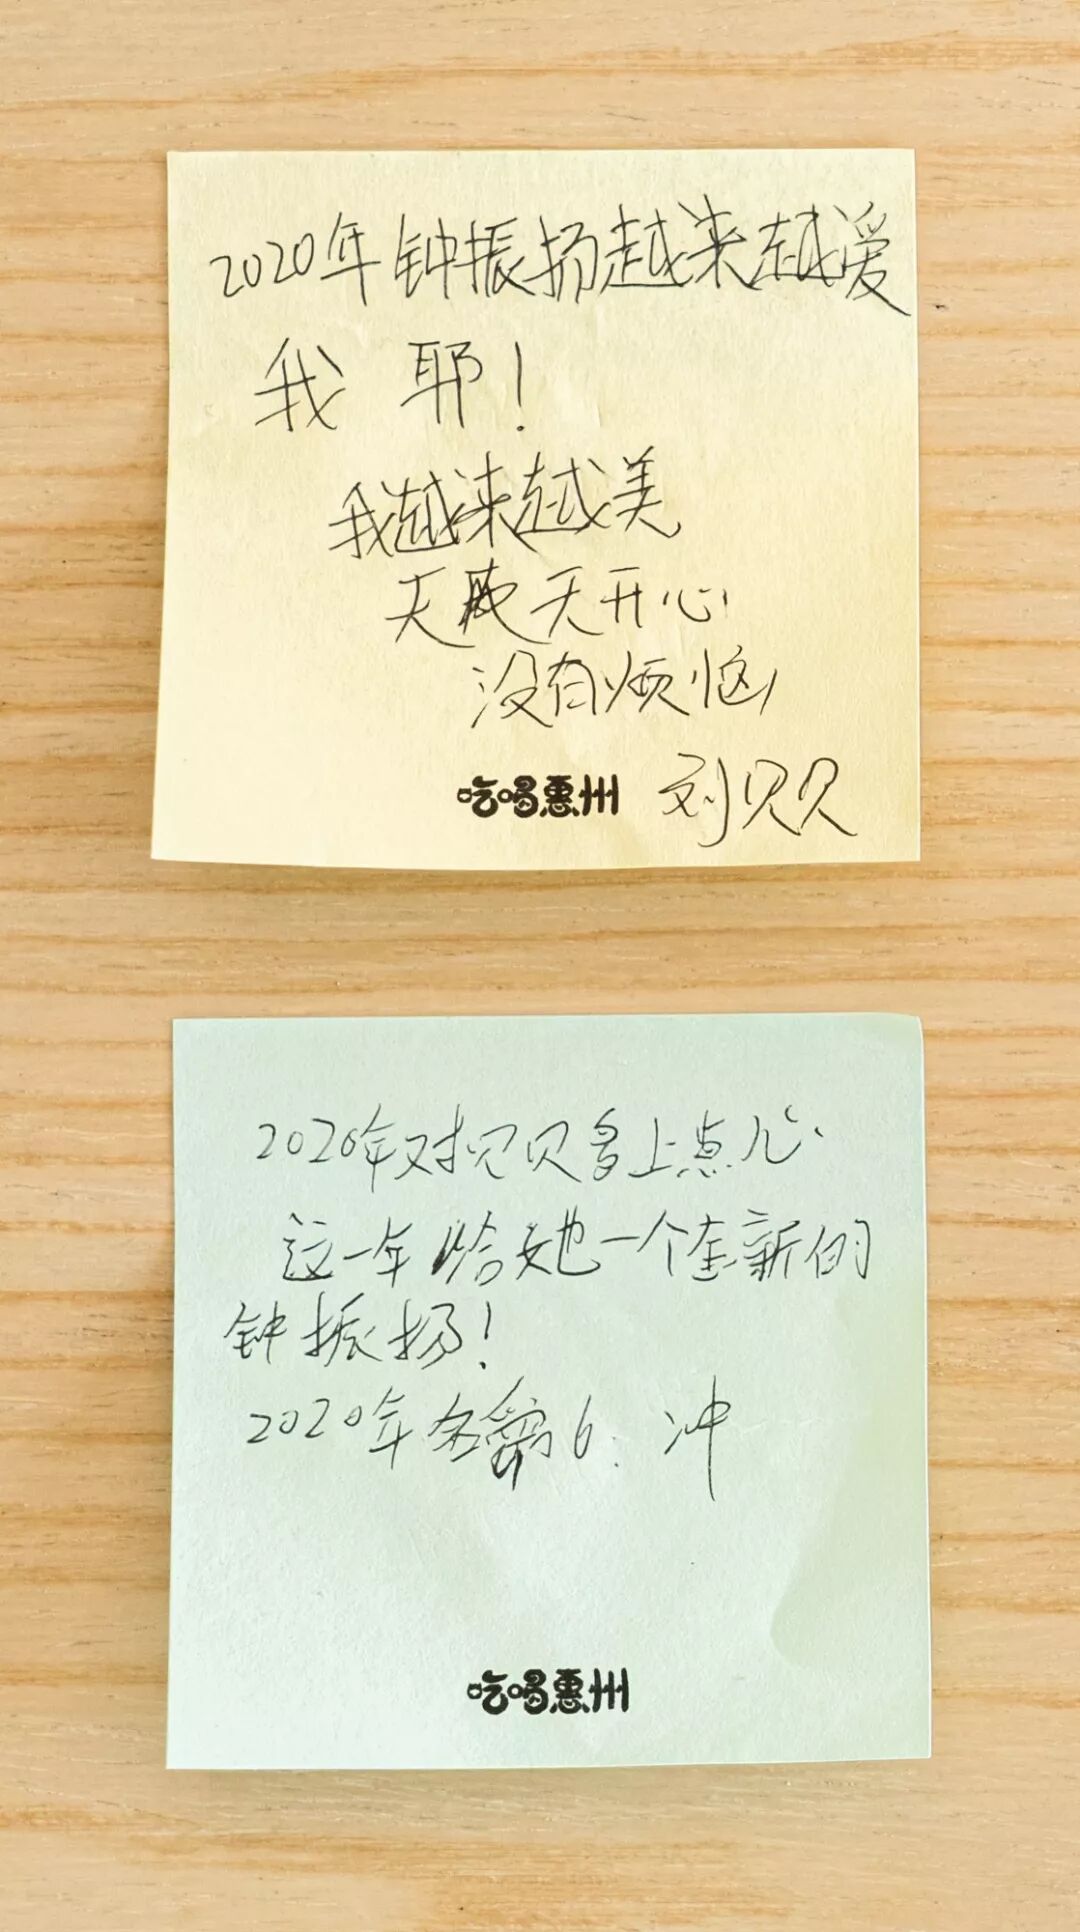 2020年钟振扬越来越爱
我 耶！
我越来越美
天天开心
没有烦恼
吃喝惠州 刘贝贝
2020年对贝贝多上点儿心
这一年给她一个全新的
钟振扬！
2020年 6. 冲
吃喝惠州